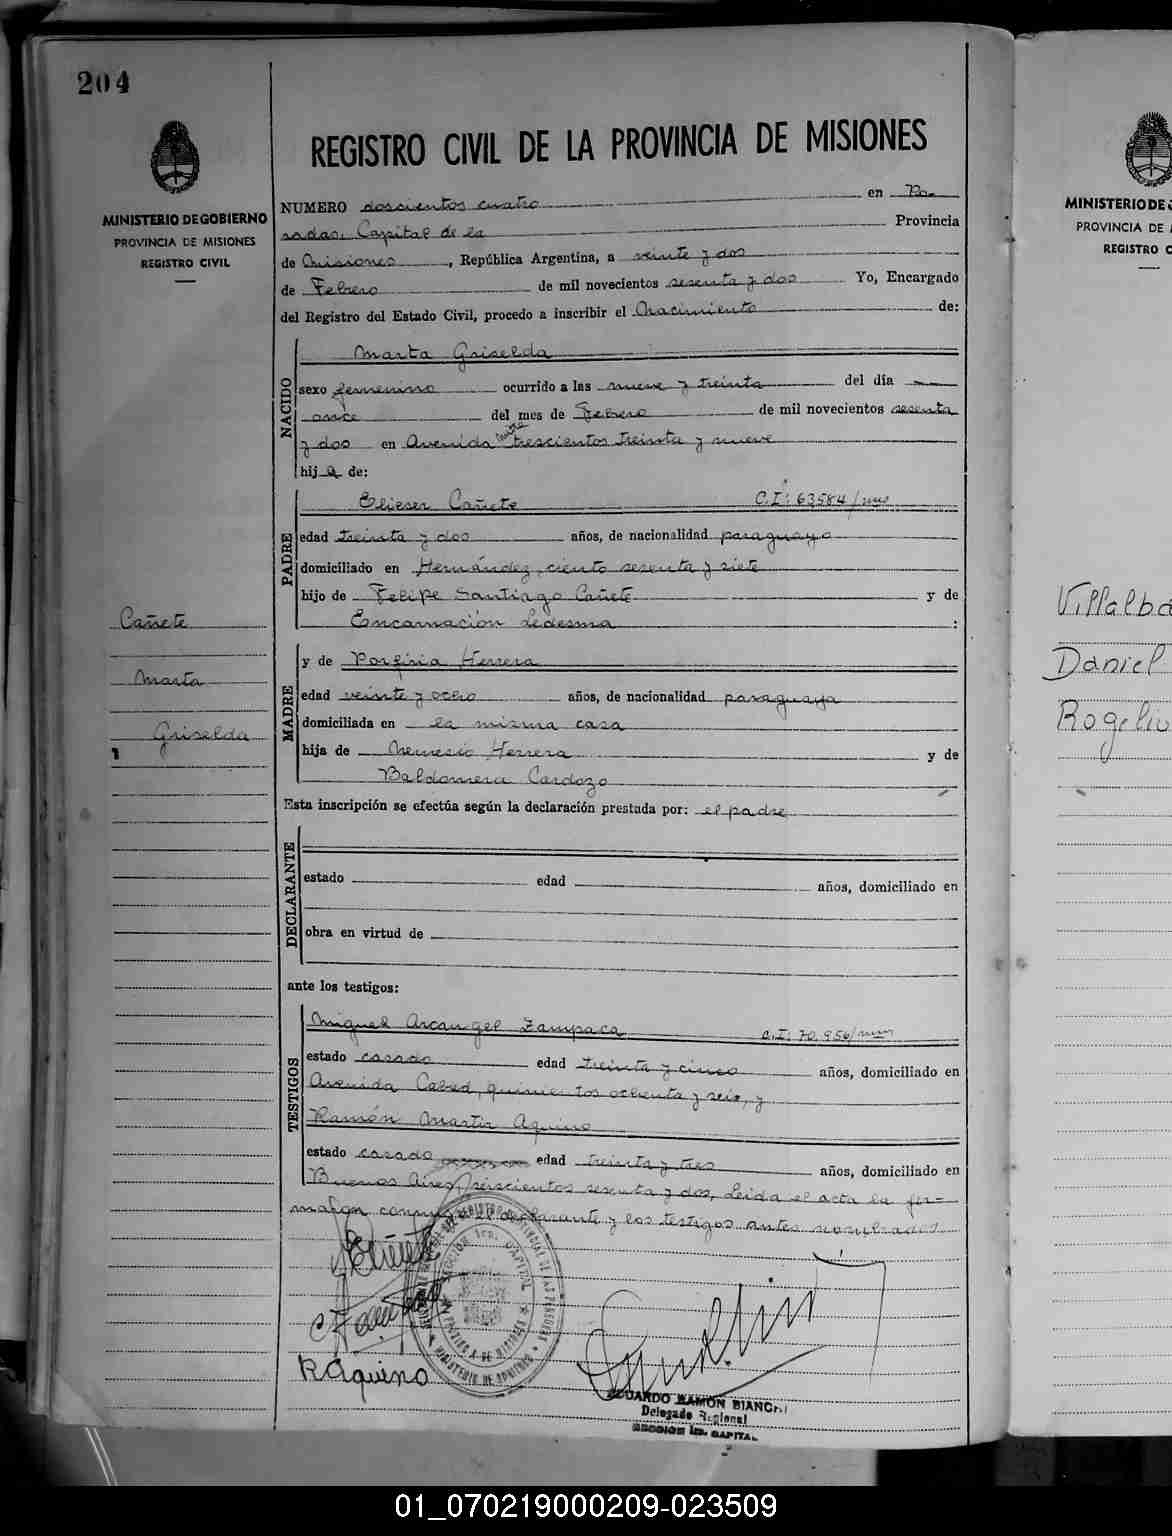 204
REGISTRO CIVIL DE LA PROVINCIA DE MISIONES
MINISTERIO DE GOBIERNO
PROVINCIA DE MISIONES
REGISTRO CIVIL
NUMERO doscientos cuatro en Po-
sadas, Capital de la Provincia
de Misiones, República Argentina, a veinte y dos
de Febrero de mil novecientos sesenta y dos Yo, Encargado
del Registro del Estado Civil, procedo a inscribir el Nacimiento de:
NACIDO
Marta Griselda
sexo femenino ocurrido a las nueve y treinta del día
once del mes de Febrero de mil novecientos sesenta
y dos en Avenida Mitre trescientos treinta y nueve
hija de:
PADRE
Elieser Cañete C.I: 63584/mnes
edad treinta y dos años, de nacionalidad paraguayo
domiciliado en Hernández, ciento sesenta y siete
hijo de Felipe Santiago Cañete y de
Encarnación Ledesma :
MADRE
y de Porfiria Herrera
edad veinte y ocho años, de nacionalidad paraguaya
domiciliada en la misma casa
hija de Nemesio Herrera y de
Baldomera Cardozo
Esta inscripción se efectúa según la declaración prestada por: el padre
DECLARANTE
estado edad años, domiciliado en
obra en virtud de
ante los testigos:
TESTIGOS
Miguel Arcangel Zampaca C.I: 70.956/mnes
estado casado edad treinta y cinco años, domiciliado en
Avenida Cabred, quinientos ochenta y seis, y
Ramón Martin Aquino
estado casado edad treinta y tres años, domiciliado en
Buenos Aires, seiscientos sesenta y dos, Leida el acta la fir-
maron conmigo el declarante y los testigos antes nombrados
Cañete
Marta
Griselda
RAquino
EDUARDO RAMON BIANCHI
Delegado Regional
SECCION 1ra. CAPITAL
MINISTERIO DE
PROVINCIA DE
REGISTRO C
Villalba
Daniel
Rogelio
01_070219000209-023509